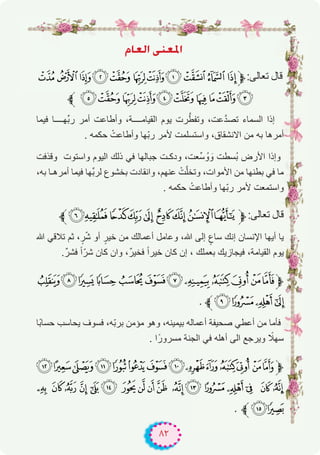 المعنى العام
قال تعالى: ﴿ إِذَا ٱلسَّمَآءُ ٱنشَقَّتْ ۝١ وَأَذِنَتْ لِرَبِّهَا وَحُقَّتْ ۝٢ وَإِذَا ٱلْأَرْضُ مُدَّتْ
۝٣ وَأَلْقَتْ مَا فِيهَا وَتَخَلَّتْ ۝٤ وَأَذِنَتْ لِرَبِّهَا وَحُقَّتْ ۝٥ ﴾
إذا السماء تصدَّعت، وتفطَّرت يوم القيامـــة، وأطاعت أمر ربّهــا فيما
أمرها به من الانشقاق، واستسلمت لأمر ربّها وأطاعتْ حكمه .
وإذا الأرض بُسطت وَوُسِّعت، ودكـت جبالها في ذلك اليوم واستوت وقذفت
ما في بطنها من الأموات، وتخلَّتْ عنهم، وانقادت بخشوع لربّها فيما أمرهـا به،
واستمعت لأمر ربّها وأطاعتْ حكمه .
قال تعالى: ﴿ يَٰٓأَيُّهَا ٱلْإِنسَٰنُ إِنَّكَ كَادِحٌ إِلَىٰ رَبِّكَ كَدْحًا فَمُلَٰقِيهِ ۝٦ ﴾
يا أيها الإنسان إنك ساعٍ إلى الله، وعامل أعمالك من خيرٍ أو شَرٍ، ثم تلاقي الله
يوم القيامة، فيجازيك بعملك ، إن كان خيراً فخيرٌ، وان كان شرّاً فشرّ.
﴿ فَأَمَّا مَنْ أُوتِيَ كِتَٰبَهُۥ بِيَمِينِهِۦ ۝٧ فَسَوْفَ يُحَاسَبُ حِسَابًا يَسِيرًا ۝٨ وَيَنقَلِبُ
إِلَىٰٓ أَهْلِهِۦ مَسْرُورًا ۝٩ ﴾ .
فأما من أعطي صحيفة أعماله بيمينه، وهو مؤمن بربّه، فسوف يحاسب حسابًا
سهلاً ويرجع الى أهله في الجنة مسرورًا .
﴿ وَأَمَّا مَنْ أُوتِيَ كِتَٰبَهُۥ وَرَآءَ ظَهْرِهِۦ ۝١٠ فَسَوْفَ يَدْعُوا۟ ثُبُورًا ۝١١ وَيَصْلَىٰ سَعِيرًا ۝١٢
إِنَّهُۥ كَانَ فِىٓ أَهْلِهِۦ مَسْرُورًا ۝١٣ إِنَّهُۥ ظَنَّ أَن لَّن يَحُورَ ۝١٤ بَلَىٰٓ إِنَّ رَبَّهُۥ كَانَ بِهِۦ
بَصِيرًا ۝١٥ ﴾ .
٨٢